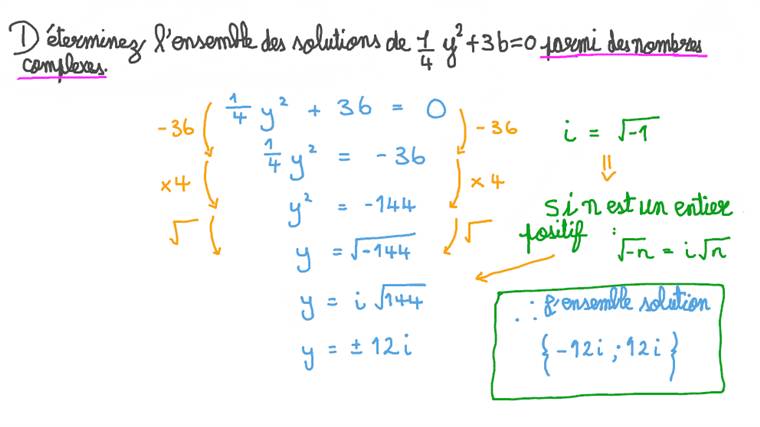 Déterminez l'ensemble des solutions de 1/4 y² + 36 = 0 parmi des nombres
complexes.
1/4 y² + 36 = 0
-36 -36
1/4 y² = -36
×4 ×4
y² = -144
√ √
y = √-144
y = i √144
y = ± 12i
i = √-1
⇓
si n est un entier
positif :
√-n = i√n
∴ L'ensemble solution
{-12i ; 12i}